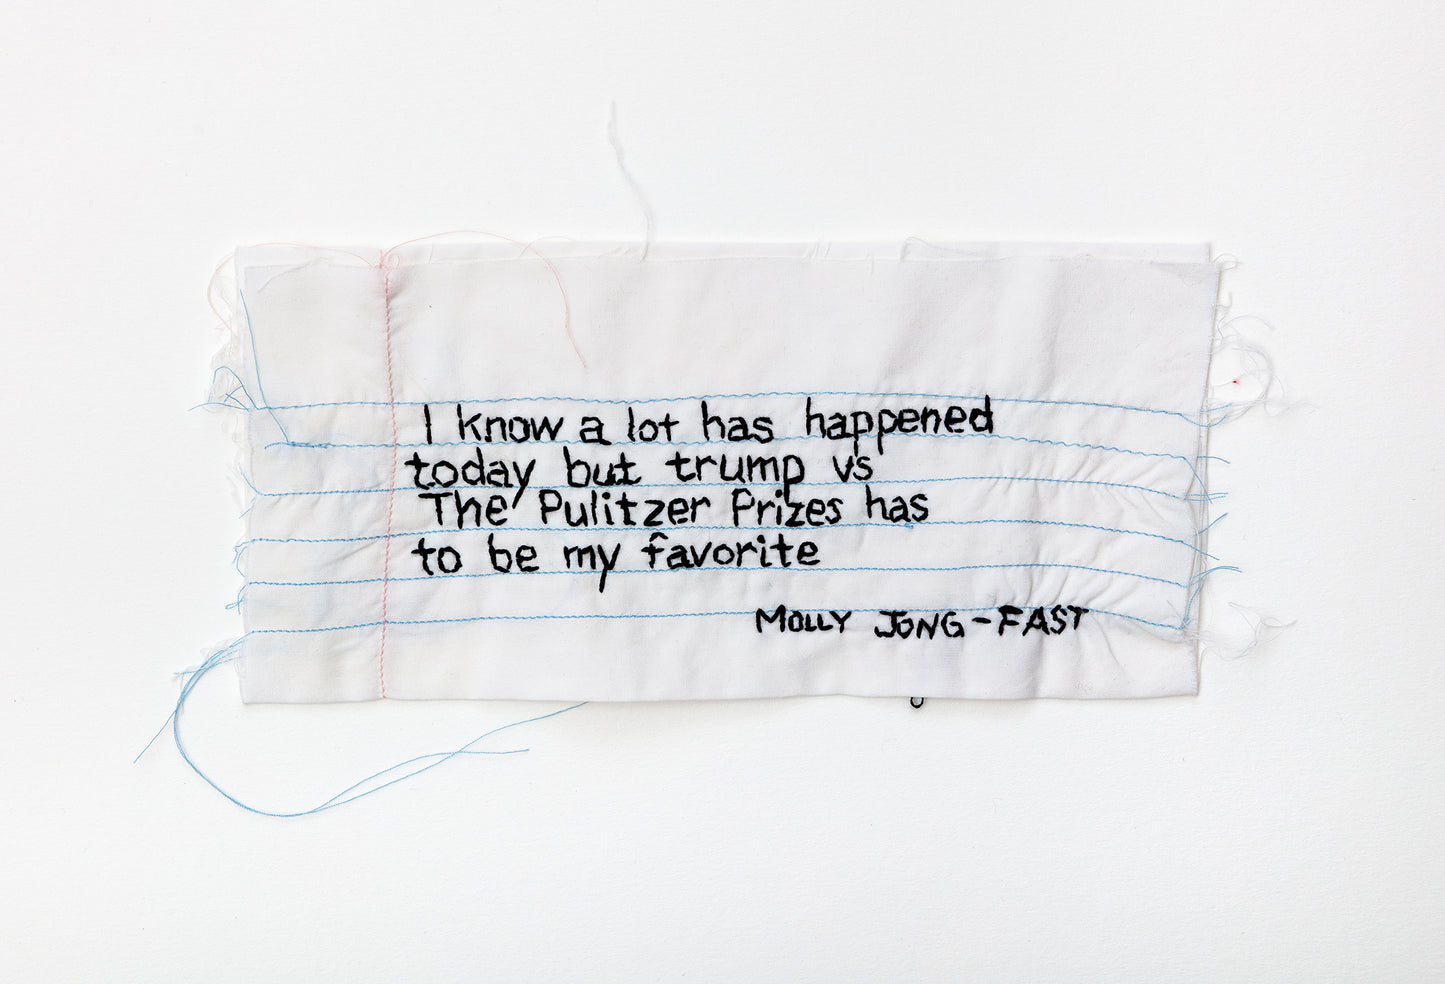 I know a lot has happened
today but trump vs
The Pulitzer Prizes has
to be my favorite
MOLLY JONG-FAST